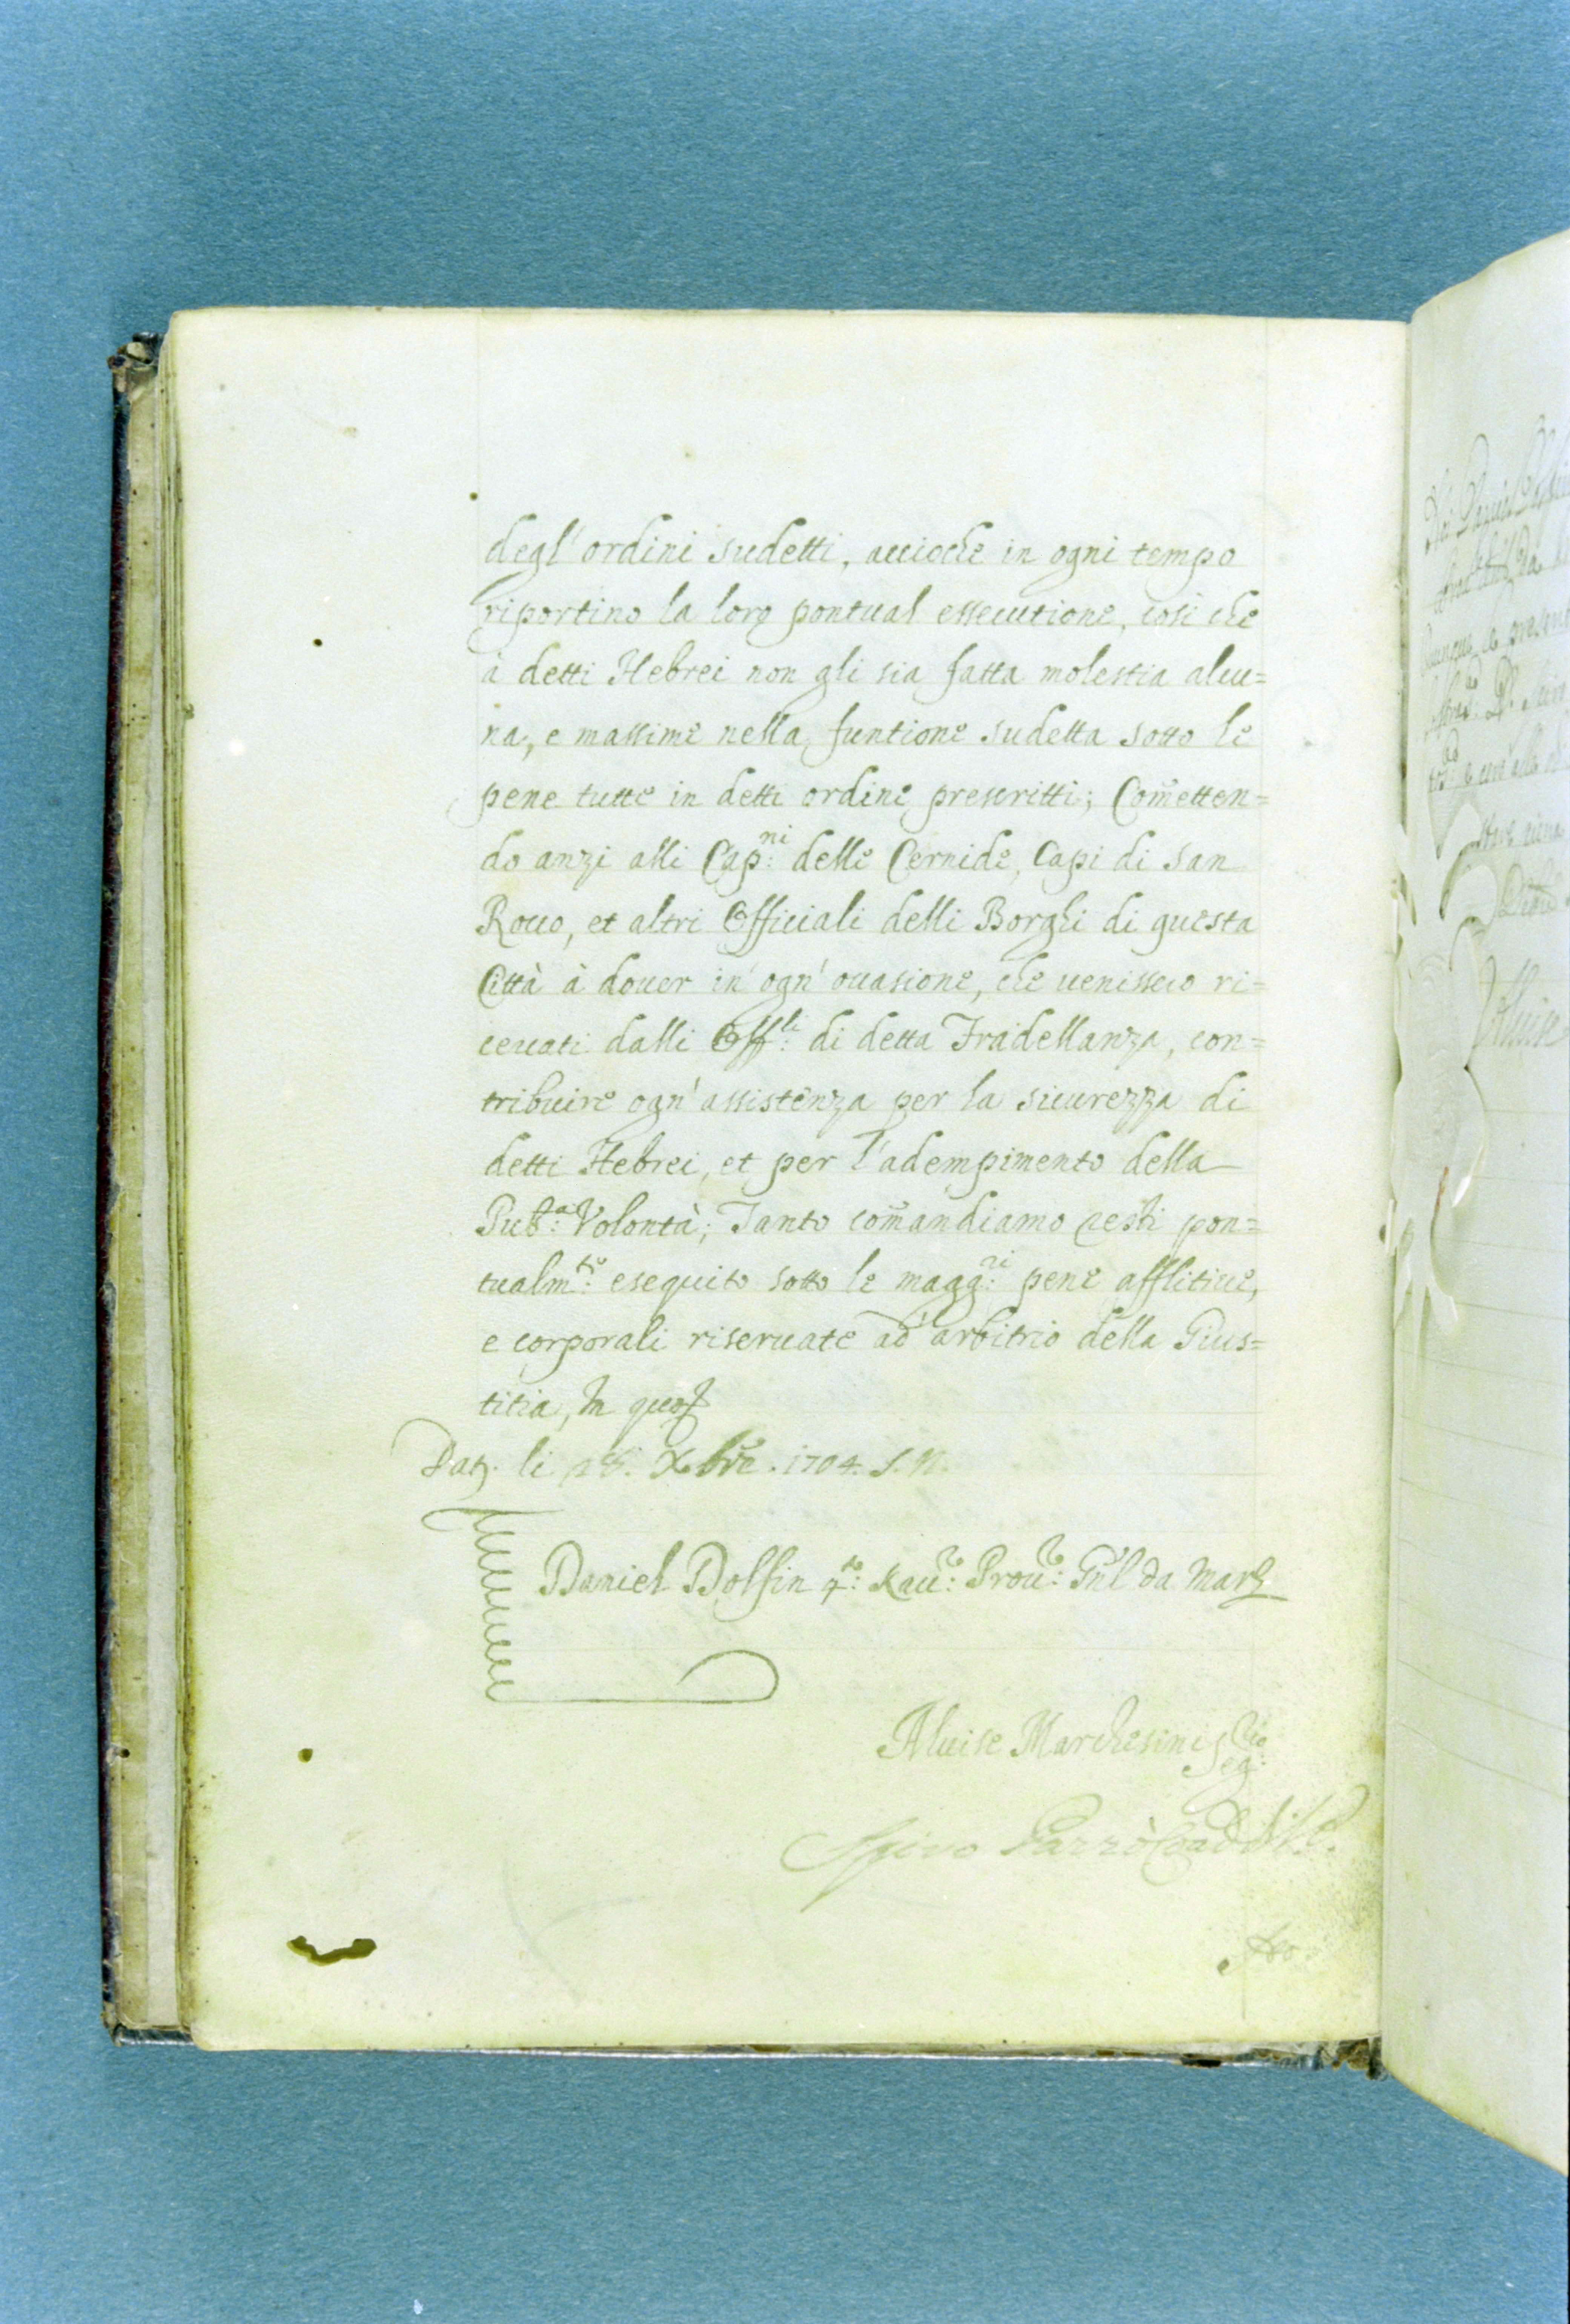 degl' ordini sudetti, acciochè in ogni tempo
riportino la loro pontual essecutione, così che
à detti Hebrei non gli sia fatta molestia alcu=
na, e massime nella funtione sudetta sotto le
pene tutte in detti ordini prescritti; Com̃etten=
do anzi alli Cap:ni delle Cernide, Capi di San
Rocco, et altri Officiali delli Borghi di questa
Città à dover in' ogn' occasione, che venissero ri=
cercati dalli Off:li di detta Fradellanza, con=
tribuire ogn' assistenza per la sicurezza di
detti Hebrei, et per l'adempimento della
Pub:a Volontà; Tanto com̃andiamo resti pon=
tualm:te esequito sotto le magg:ri pene afflitive,
e corporali riservate ad arbitrio della Gius=
titia, In quor
Dat. li Xbre. 1704. S. N.
Daniel Dolfin 4:to Kav:r Prov:r Gñl da Mar
Aluise Marchesini Seg:rio